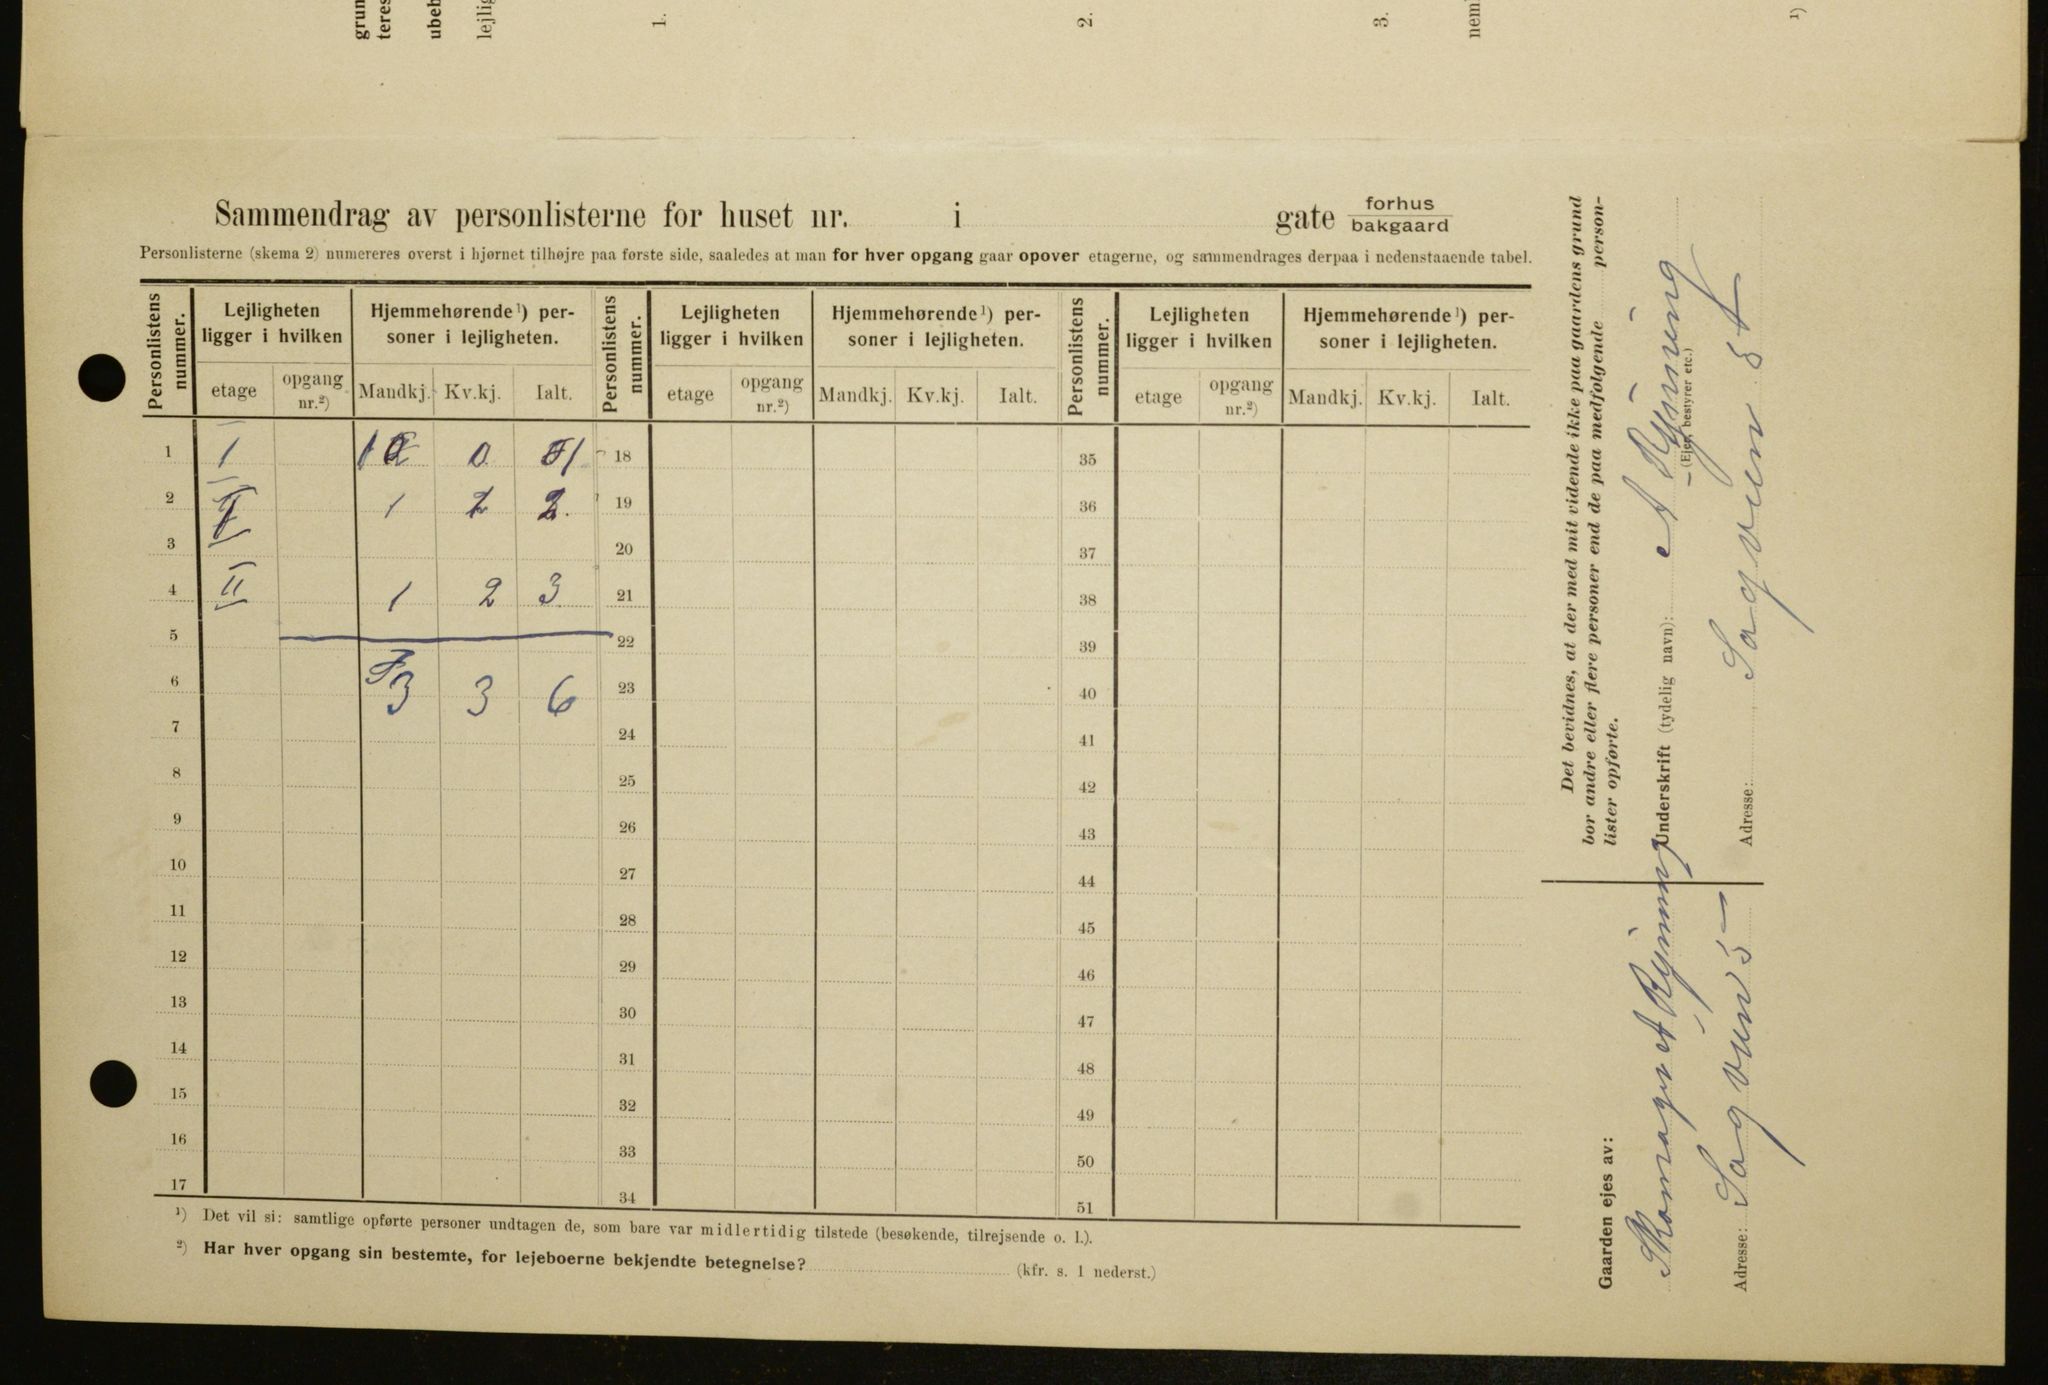 grun
teres
ubeb
lejlig
1.
2.
3.
nem
1)
Sammendrag av personlisterne for huset nr. i gate forhus
bakgaard
Personlisterne (skema 2) numereres øverst i hjørnet tilhøjre paa første side, saaledes at man for hver opgang gaar opover etagerne, og sammendrages derpaa i nedenstaaende tabel.
Personlistens nummer. Lejligheten ligger i hvilken Hjemmehørende¹) personer i lejligheten. Personlistens nummer. Lejligheten ligger i hvilken Hjemmehørende¹) personer i lejligheten. Personlistens nummer. Lejligheten ligger i hvilken Hjemmehørende¹) personer i lejligheten.
etage opgang nr.²) Mandkj. Kv.kj. Ialt. etage opgang nr.²) Mandkj. Kv.kj. Ialt. etage opgang nr.²) Mandkj. Kv.kj. Ialt.
1 I 1 0 1 18 35
2 1 2 19 36
3 20 37
4 II 1 2 3 21 38
5 22 39
6 3 3 6 23 40
7 24 41
8 25 42
9 26 43
10 27 44
11 28 45
12 29 46
13 30 47
14 31 48
15 32 49
16 33 50
17 34 51
¹) Det vil si: samtlige opførte personer undtagen de, som bare var midlertidig tilstede (besøkende, tilrejsende o. l.).
²) Har hver opgang sin bestemte, for lejeboerne bekjendte betegnelse? (kfr. s. 1 nederst.)
Det bevidnes, at der med mit vidende ikke paa gaardens grund
bor andre eller flere personer end de paa medfølgende person-
lister opførte.
Underskrift (tydelig navn): A
(Ejer, bestyrer etc.)
Adresse: Sagveien 5
Gaarden ejes av:
Skomager A
Adresse: Sagveien 5